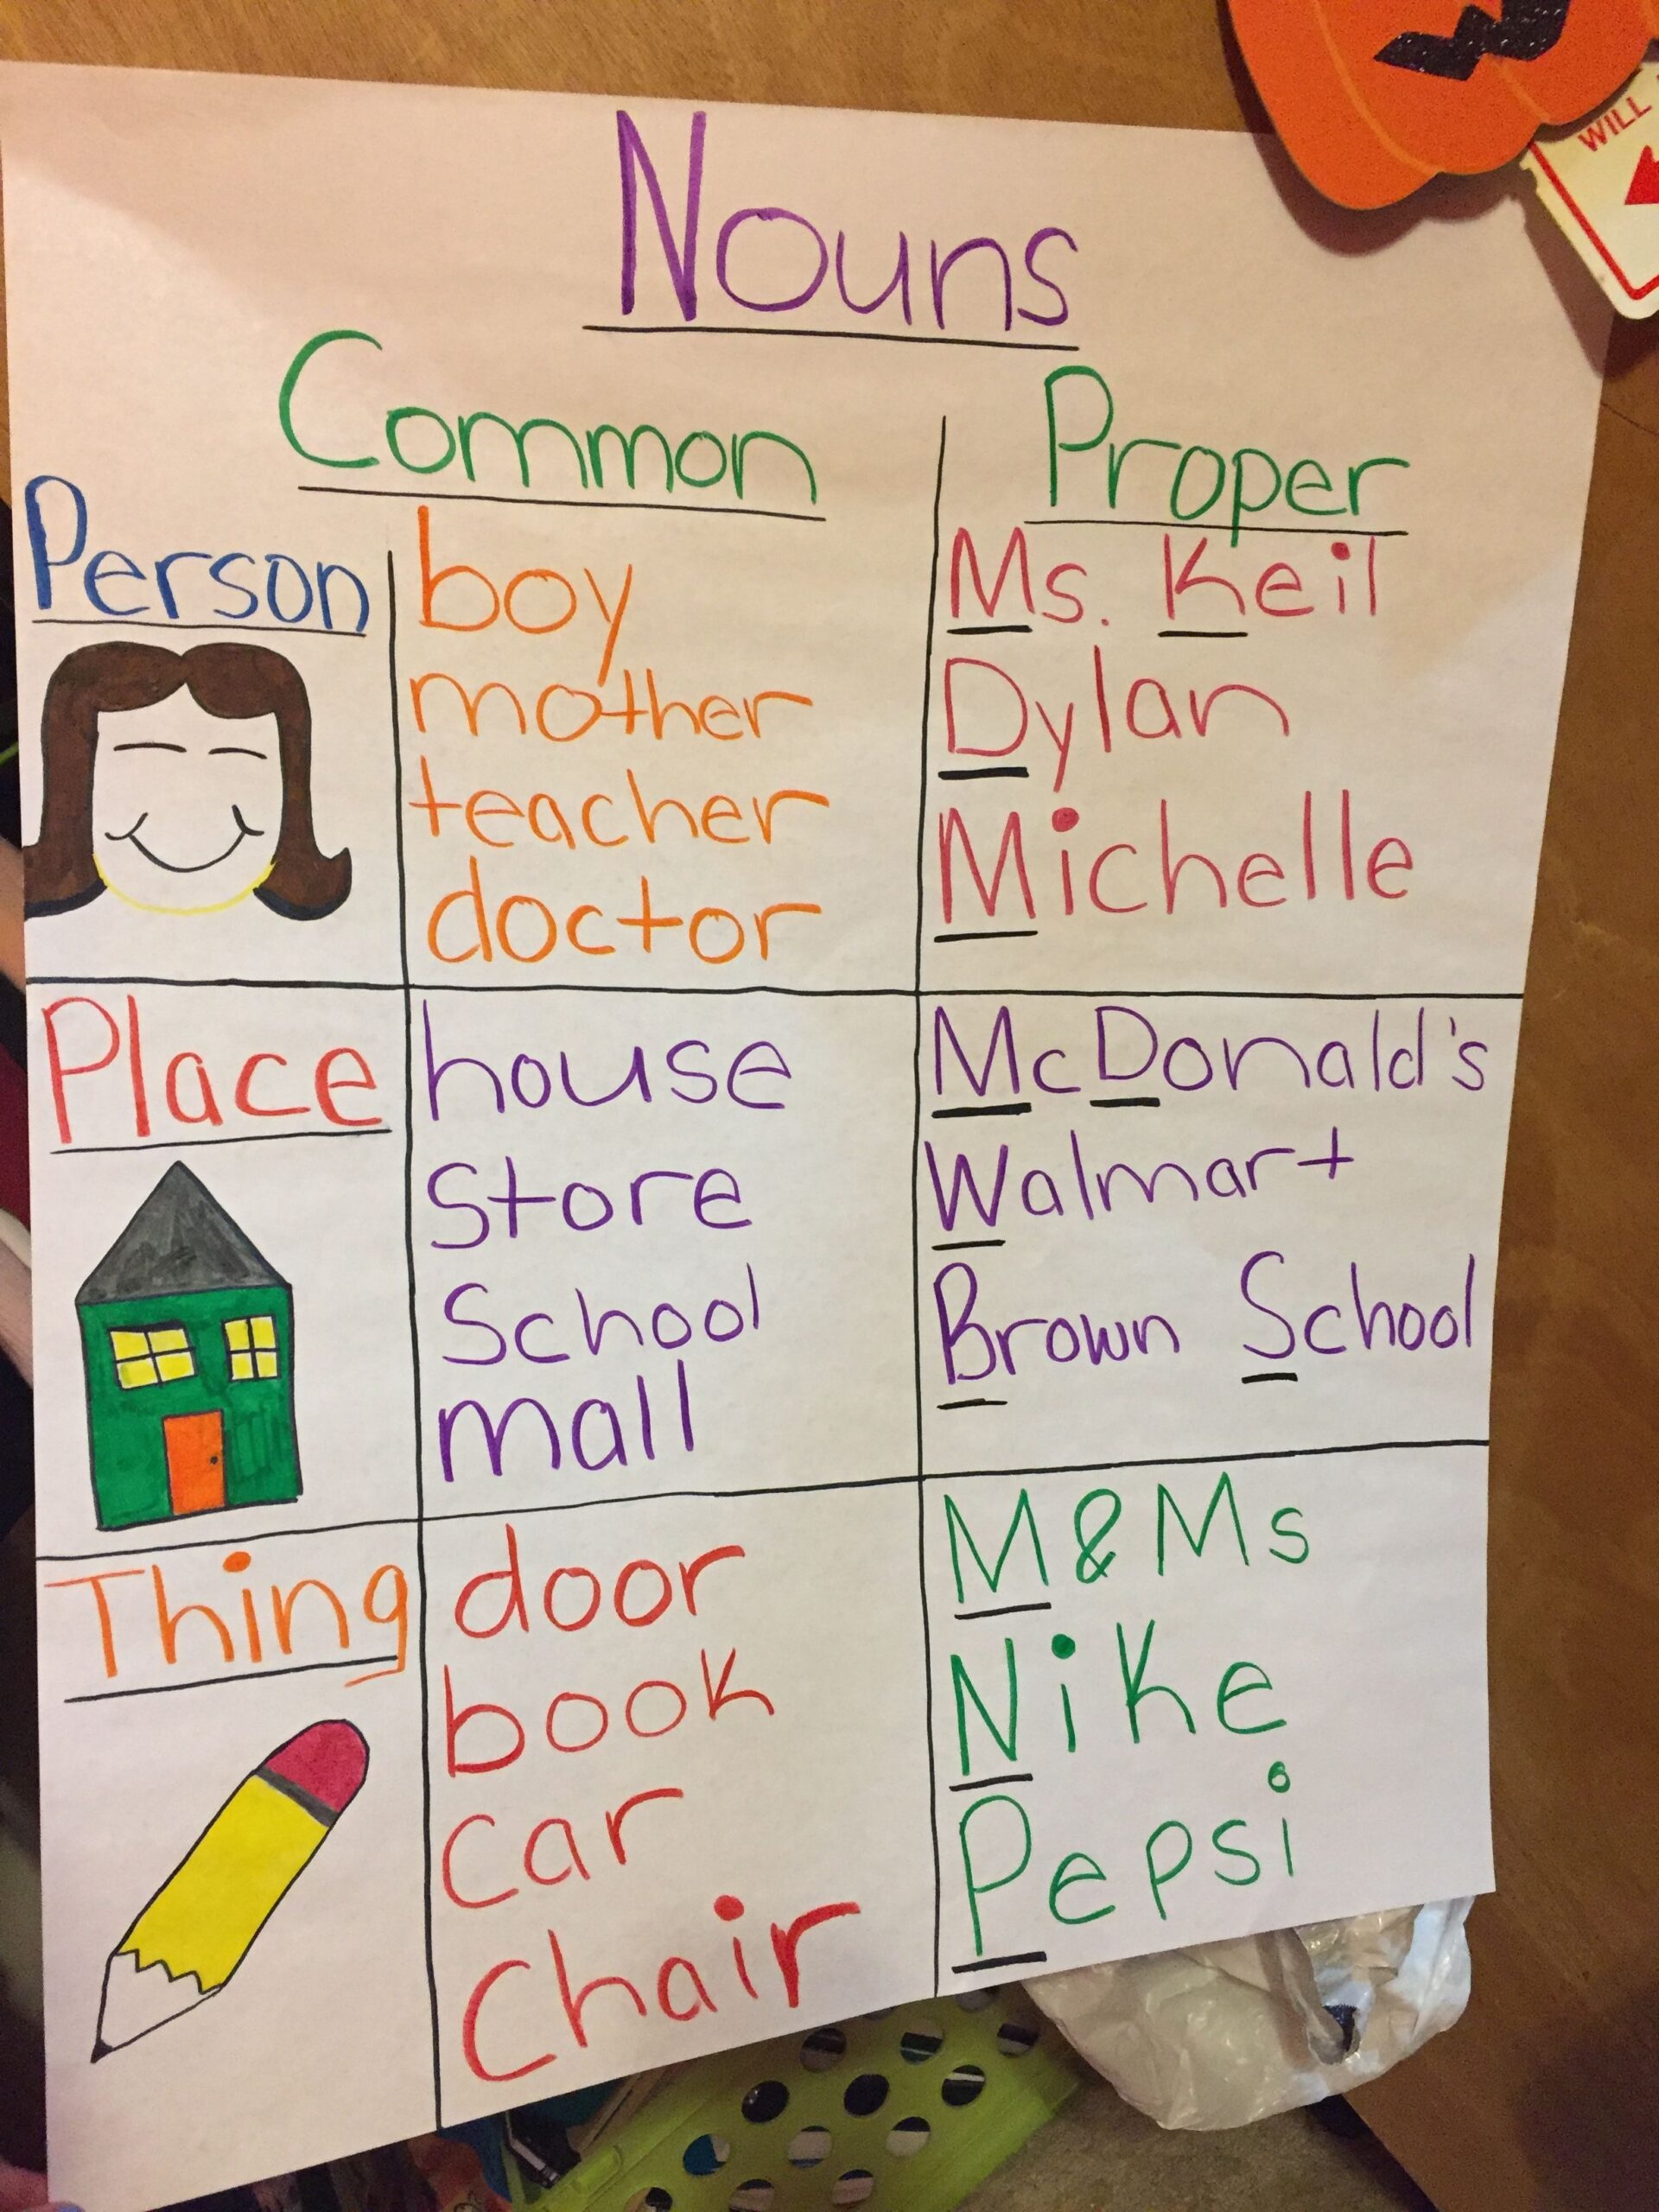 WILL
Nouns
Common
Proper
Person
boy
mother
teacher
doctor
Ms. Keil
Dylan
Michelle
Place
house
store
school
mall
McDonald's
Walmart
Brown School
Thing
door
book
car
chair
M&Ms
Nike
Pepsi